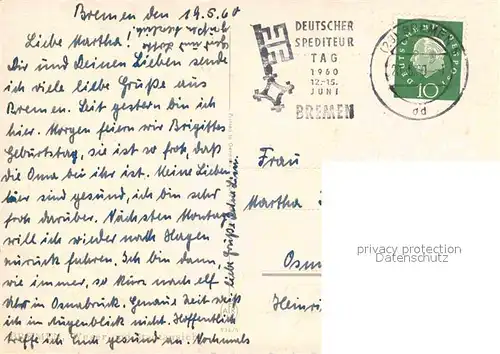 Bremen den 19.5.60
Liebe Martha!
Dir und Deinen Lieben sende
ich viele liebe Grüße aus
Bremen. Seit gestern bin ich
hier. Morgen feiern wir Brigittes
Geburtstag, sie ist so froh, daß
die Oma bei ihr ist. Meine Lieben
hier sind gesund, ich bin sehr
froh darüber. Nächsten Montag
will ich wieder nach Hagen
zurück fahren. Ich bin dann,
wie immer, so kurz nach elf
Uhr in Osnabrück. Genaue Zeit weiß
ich im Augenblick nicht. Hoffentlich
treffe ich Euch gesund an. Nochmals
liebe Grüße
DEUTSCHER
SPEDITEUR
TAG
1960
12.-15.
JUNI
BREMEN
DEUTSCHE BUNDESPOST
10
Frau
Martha
Osna
Heinri
privacy protection
Datenschutz